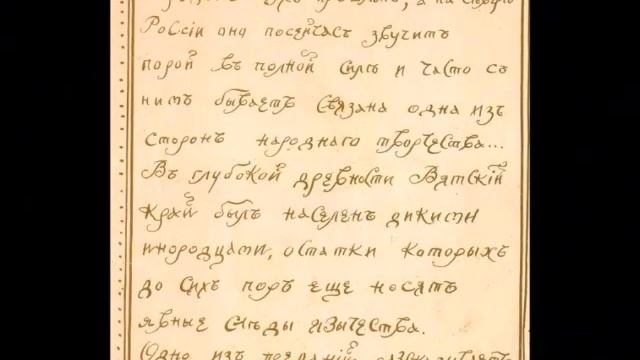 а на Сѣверѣ
Россіи оно посейчасъ звучитъ
порой въ полной силѣ и часто съ
нимъ бываетъ связана одна изъ
сторонъ народнаго творчества...
Въ глубокой древности Вятскій
край былъ населенъ дикими
инородцами, остатки которыхъ
до сихъ поръ еще носятъ
явные слѣды язычества.
Одно изъ преданій